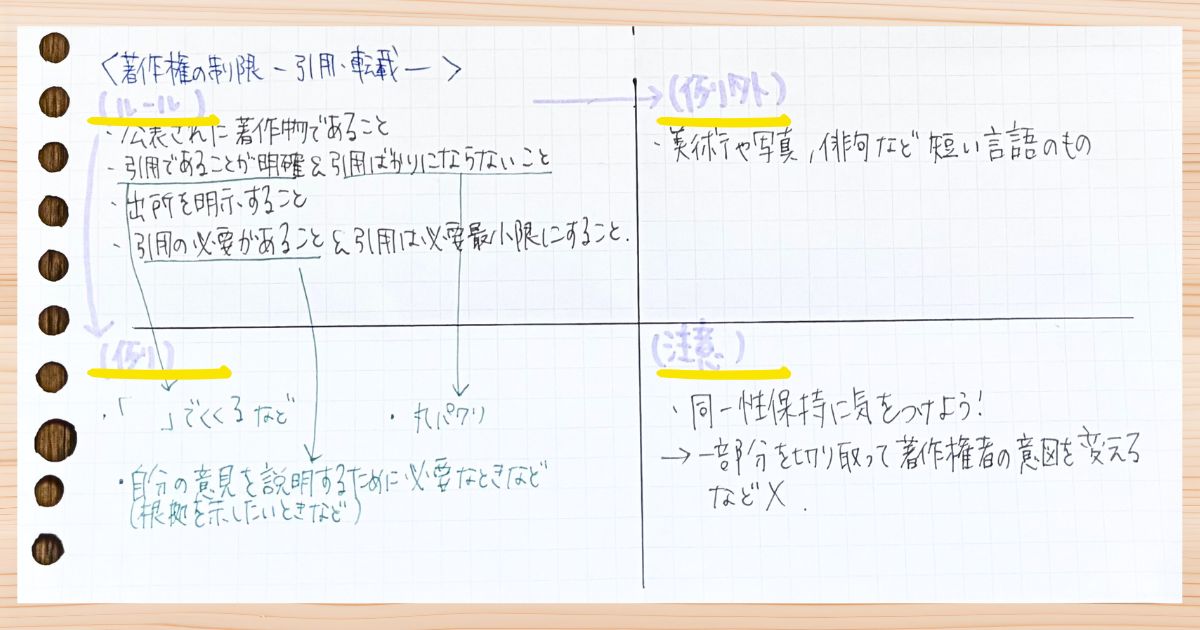 〈著作権の制限 ー引用・転載ー〉
(ルール)
・公表された著作物であること
・引用であることが明確&引用ばかりにならないこと
・出所を明示すること
・引用の必要があること&引用は必要最小限にすること.
(例外)
・美術や写真,俳句など短い言語のもの
(例)
・「　」でくくるなど
・丸パクリ
・自分の意見を説明するために必要なときなど
(根拠を示したいときなど)
(注意)
・同一性保持に気をつけよう!
→一部分を切り取って著作権者の意図を変える
など✕.